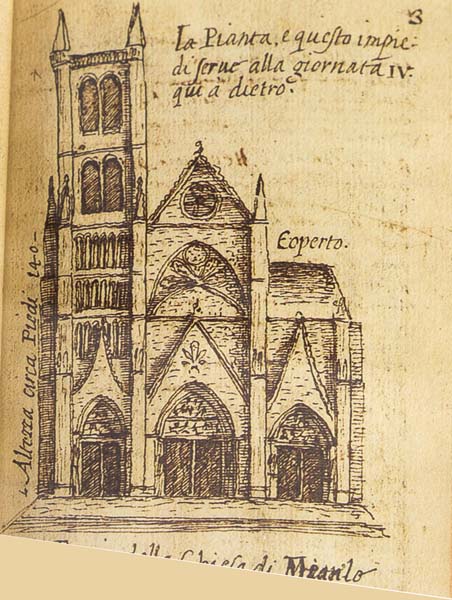 3
La Pianta, e questo impie-
di serve alla giornata IV.
qui a dietro.
Coperto.
Altezza circa Piedi 140
della Chiesa di